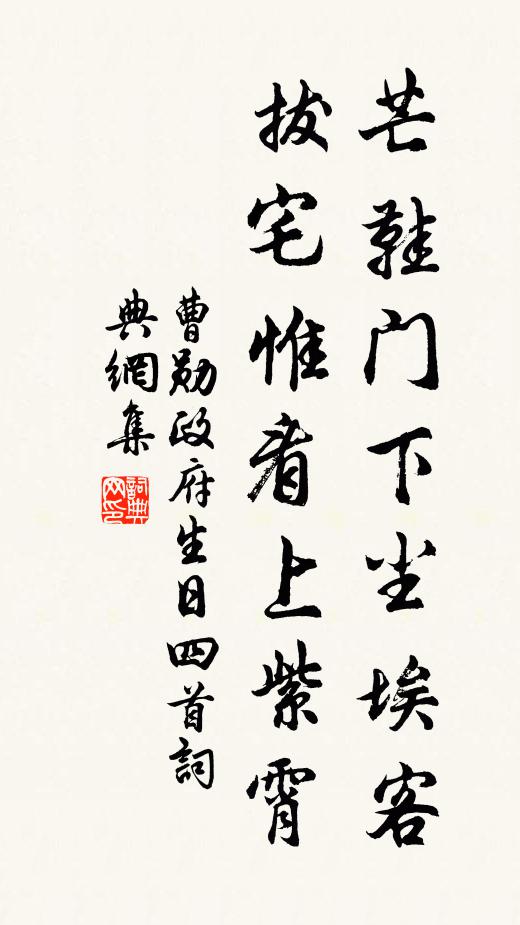 芒鞋門下尘埃客
拔宅惟看上紫霄
曹勛政府生日四首詞
典網集
詞典
网印